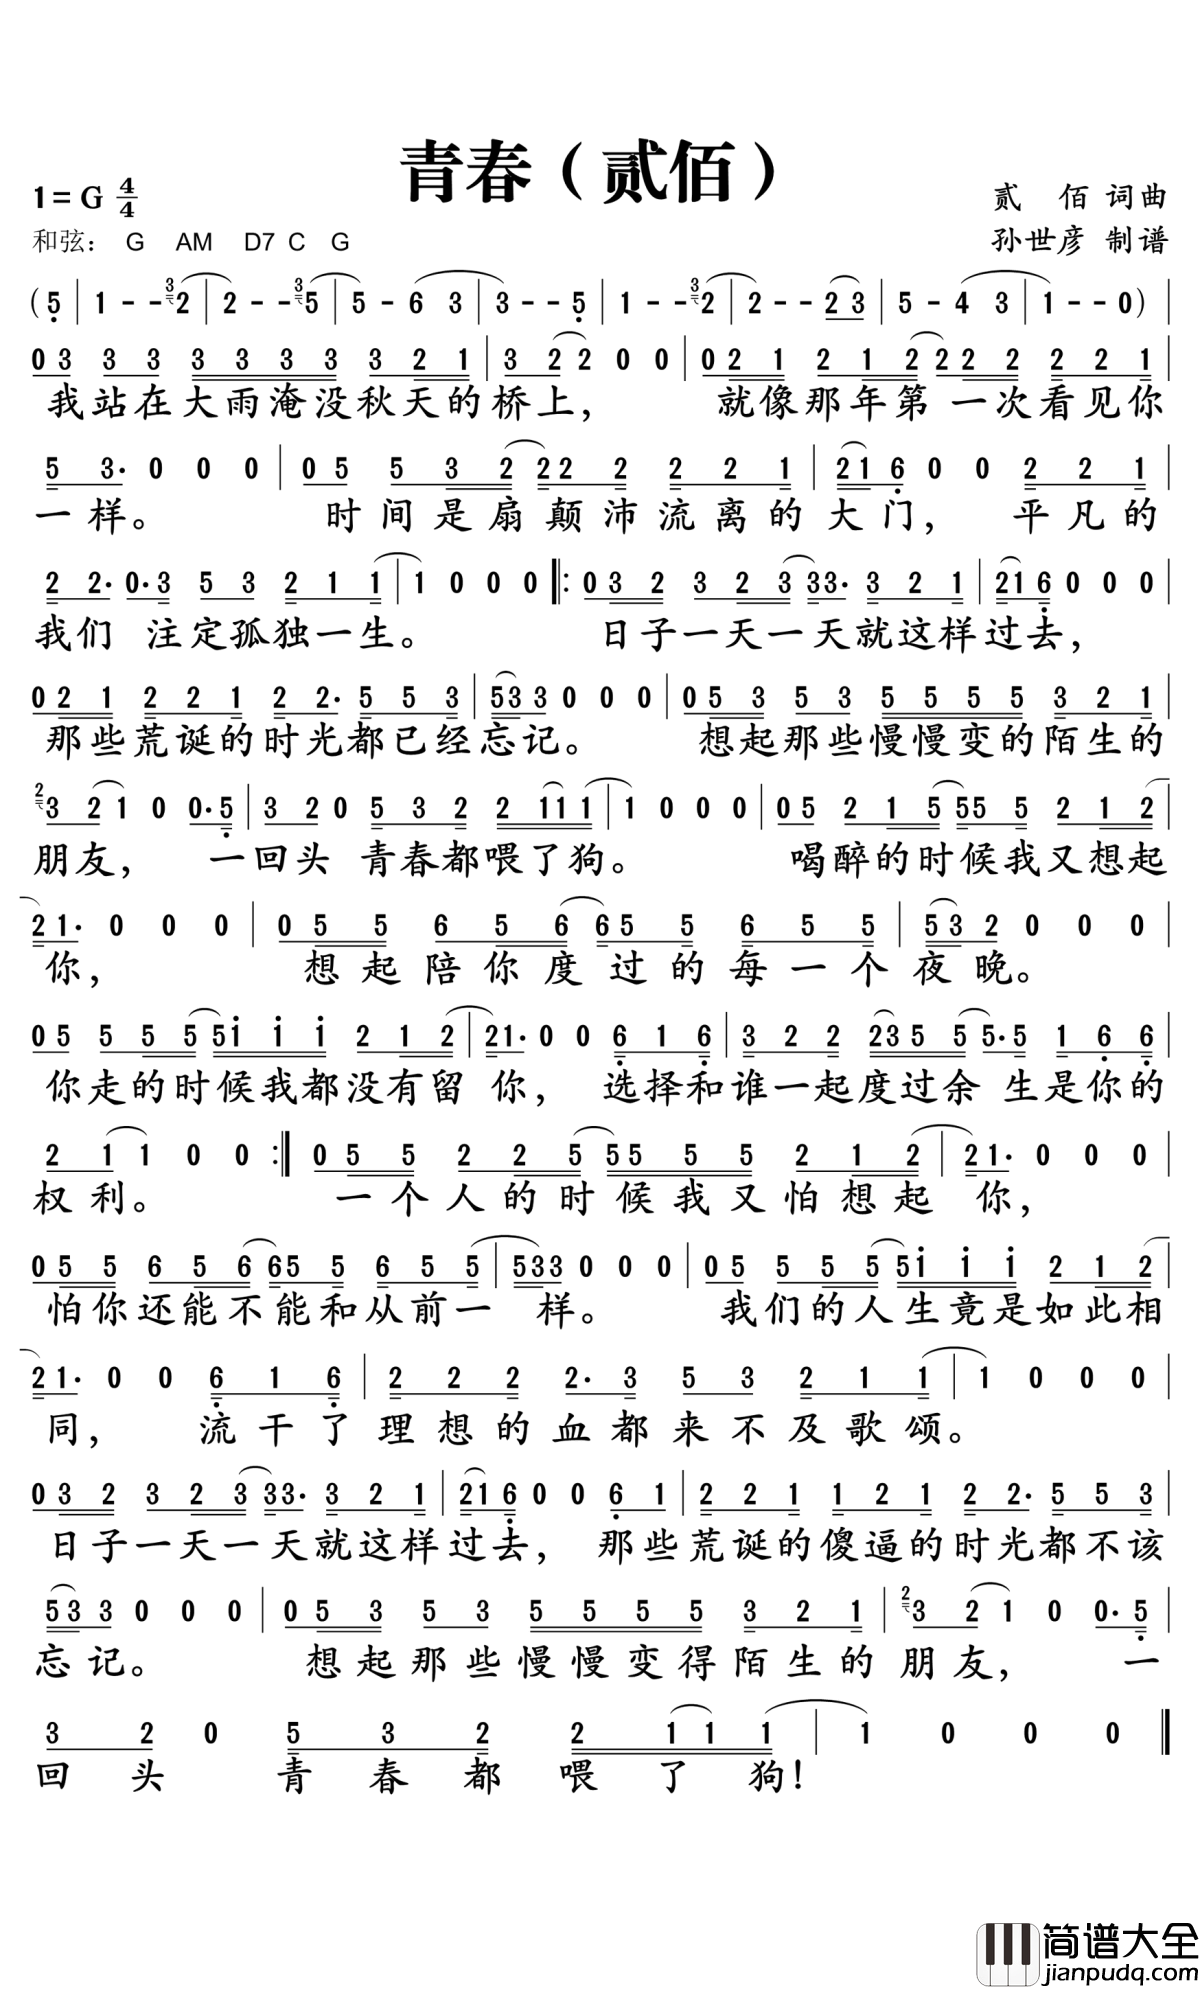 青春（贰佰）
1=G 4/4
贰 佰 词曲
和弦： G AM D7 C G
孙世彦 制谱
(5 | 1 - - 32 | 2 - - 35 | 5 - 6 3 | 3 - - 5 | 1 - - 32 | 2 - - 2 3 | 5 - 4 3 | 1 - - 0) |
0 3 3 3 3 3 3 3 3 2 1 | 3 2 2 0 0 | 0 2 1 2 1 2 2 2 2 2 2 1 |
我站在大雨淹没秋天的桥上， 就像那年第一次看见你
5 3· 0 0 0 | 0 5 5 3 2 2 2 2 2 2 1 | 2 1 6 0 0 2 2 1 |
一样。 时间是扇颠沛流离的大门， 平凡的
2 2· 0· 3 5 3 2 1 1 | 1 0 0 0 |: 0 3 2 3 2 3 3 3· 3 2 1 | 2 1 6 0 0 0 |
我们 注定孤独一生。 日子一天一天就这样过去，
0 2 1 2 2 1 2 2· 5 5 3 | 5 3 3 0 0 0 | 0 5 3 5 3 5 5 5 5 3 2 1 |
那些荒诞的时光都已经忘记。 想起那些慢慢变的陌生的
2 3 2 1 0 0· 5 | 3 2 0 5 3 2 2 1 1 1 | 1 0 0 0 | 0 5 2 1 5 5 5 5 2 1 2 |
朋友， 一回头 青春都喂了狗。 喝醉的时候我又想起
2 1· 0 0 0 | 0 5 5 6 5 6 6 5 5 6 5 5 | 5 3 2 0 0 0 |
你， 想起陪你度过的每一个夜晚。
0 5 5 5 5 5 i i i 2 1 2 | 2 1· 0 0 6 1 6 | 3 2 2 2 3 5 5 5· 5 1 6 6 |
你走的时候我都没有留 你， 选择和谁一起度过余 生是你的
2 1 1 0 0 :| 0 5 5 2 2 5 5 5 5 5 2 1 2 | 2 1· 0 0 0 |
权利。 一个人的时候我又怕想起 你，
0 5 5 6 5 6 6 5 5 6 5 5 | 5 3 3 0 0 0 | 0 5 5 5 5 5 i i i 2 1 2 |
怕你还能不能和从前一 样。 我们的人生竟是如此相
2 1· 0 0 6 1 6 | 2 2 2 2· 3 5 3 2 1 1 | 1 0 0 0 |
同， 流干了理想的血都来不及歌颂。
0 3 2 3 2 3 3 3· 3 2 1 | 2 1 6 0 0 6 1 | 2 2 1 1 2 1 2 2· 5 5 3 |
日子一天一天就这样过去， 那些荒诞的傻逼的时光都不该
5 3 3 0 0 0 | 0 5 3 5 3 5 5 5 5 3 2 1 | 2 3 2 1 0 0· 5 |
忘记。 想起那些慢慢变得陌生的朋友， 一
3 2 0 5 3 2 2 1 1 1 | 1 0 0 0 ‖
回头 青春都喂了狗！
简谱大全
jianpudq.com